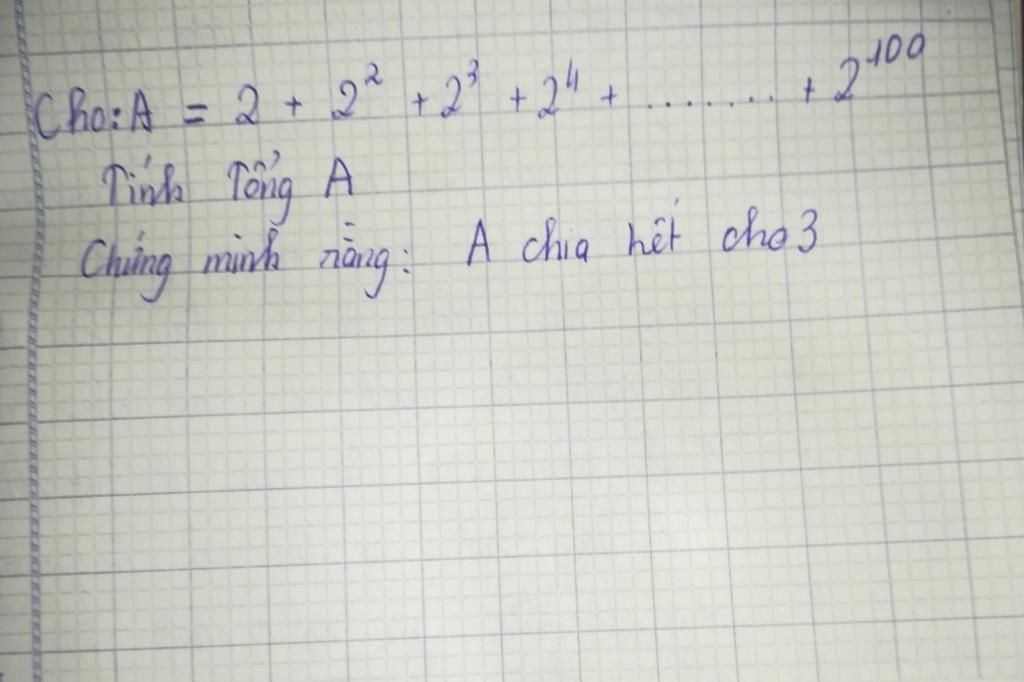 Cho: A = 2 + 2² + 2³ + 2⁴ + ........ + 2¹⁰⁰
Tính Tổng A
Chứng minh rằng: A chia hết cho 3